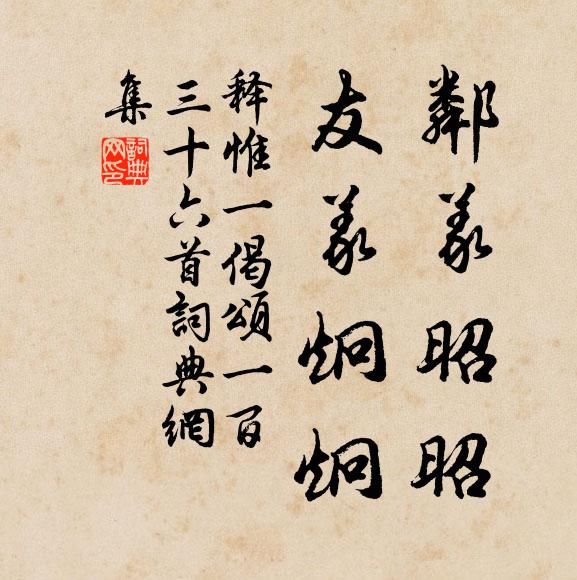 鄰義昭昭
友義炯炯
釋惟一偈頌一百
三十六首詞典網
集
詞典网印